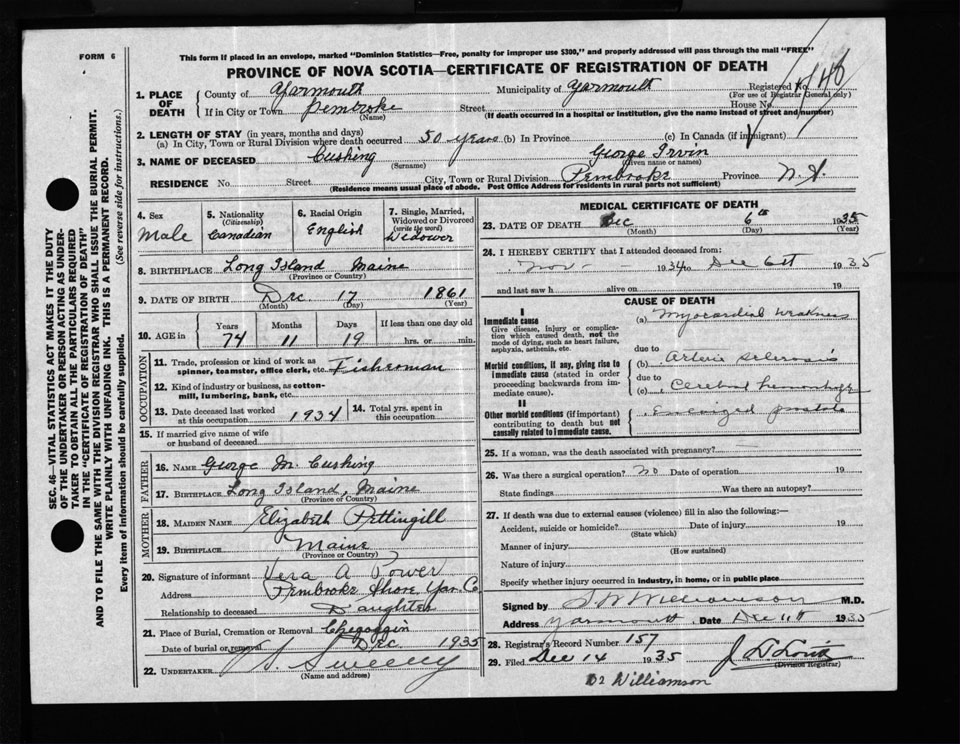 FORM 6
This form if placed in an envelope, marked "Dominion Statistics—Free, penalty for improper use $300," and properly addressed will pass through the mail "FREE"
PROVINCE OF NOVA SCOTIA—CERTIFICATE OF REGISTRATION OF DEATH
1. PLACE OF DEATH
County of Yarmouth Municipality of Yarmouth Registered No.
(For use of Registrar General only)
If in City or Town Pembroke Street House No.
(Name) (If death occurred in a hospital or institution, give the name instead of street and number)
2. LENGTH OF STAY (in years, months and days)
(a) In City, Town or Rural Division where death occurred 50 years (b) In Province (c) In Canada (if immigrant)
3. NAME OF DECEASED Cushing George Irvin
(Surname) (Given name or names)
RESIDENCE No. Street City, Town or Rural Division Pembroke Province N.S.
(Residence means usual place of abode. Post Office Address for residents in rural parts not sufficient)
4. Sex Male
5. Nationality (Citizenship) Canadian
6. Racial Origin English
7. Single, Married, Widowed or Divorced (write the word) Widower
8. BIRTHPLACE Long Island Maine
(Province or Country)
9. DATE OF BIRTH Dec. 17 1861
(Month) (Day) (Year)
10. AGE in Years Months Days If less than one day old
74 11 19 hrs. or min.
OCCUPATION
11. Trade, profession or kind of work as spinner, teamster, office clerk, etc. Fisherman
12. Kind of industry or business, as cotton-mill, lumbering, bank, etc.
13. Date deceased last worked at this occupation 1934
14. Total yrs. spent in this occupation
15. If married give name of wife or husband of deceased
FATHER
16. NAME George M. Cushing
17. BIRTHPLACE Long Island, Maine
(Province or Country)
MOTHER
18. MAIDEN NAME Elizabeth Pettingill
19. BIRTHPLACE Maine
(Province or Country)
20. Signature of informant Vera A Power
Address Pembroke Shore Yar. Co.
Relationship to deceased Daughter
21. Place of Burial, Cremation or Removal Chegoggin
Date of burial or removal Dec. 1935
22. UNDERTAKER Sweeny
(Name and address)
MEDICAL CERTIFICATE OF DEATH
23. DATE OF DEATH Dec 6th 1935
(Month) (Day) (Year)
24. I HEREBY CERTIFY that I attended deceased from:
Nov 1934 to Dec 6th 1935
and last saw h alive on 19
CAUSE OF DEATH
I
Immediate cause
Give disease, injury or complication which caused death, not the mode of dying, such as heart failure, asphyxia, asthenia, etc.
(a) Myocardial weakness
due to
Morbid conditions, if any, giving rise to immediate cause (stated in order proceeding backwards from immediate cause).
(b) Arterio sclerosis
due to
(c) Cerebral hemorrhage
II
Other morbid conditions (if important) contributing to death but not causally related to immediate cause.
Enlarged prostate
25. If a woman, was the death associated with pregnancy?
26. Was there a surgical operation? no Date of operation 19
State findings Was there an autopsy?
27. If death was due to external causes (violence) fill in also the following:—
Accident, suicide or homicide? Date of injury 19
(State which)
Manner of injury
(How sustained)
Nature of injury
Specify whether injury occurred in industry, in home, or in public place
Signed by S W Williamson M.D.
Address Yarmouth Date Dec 11th 1935
28. Registrar's Record Number 157
29. Filed Dec 14 1935
(Division Registrar)
Dr Williamson
SEC. 46—VITAL STATISTICS ACT MAKES IT THE DUTY
OF THE UNDERTAKER OR PERSON ACTING AS UNDER-
TAKER TO OBTAIN ALL THE PARTICULARS REQUIRED
IN THE "CERTIFICATE OF REGISTRATION OF DEATH"
AND TO FILE THE SAME WITH THE DIVISION REGISTRAR WHO SHALL ISSUE THE BURIAL PERMIT.
WRITE PLAINLY WITH UNFADING INK. THIS IS A PERMANENT RECORD.
Every item of information should be carefully supplied. (See reverse side for instructions.)